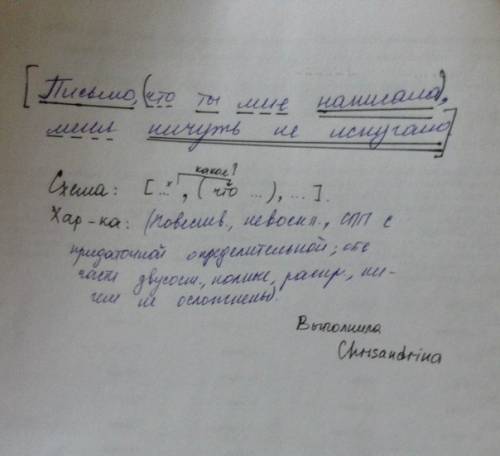 [Письмо, (что ты мне написала),
меня ничуть не испугало]
какое?
Схема: [...х, (что ...), ...].
Хар-ка: (Повеств., невоскл., СПП с
придаточной определительной; обе
части двусост., полные, распр., ни-
чем не осложнены).
Выполнила
Chrisandrina